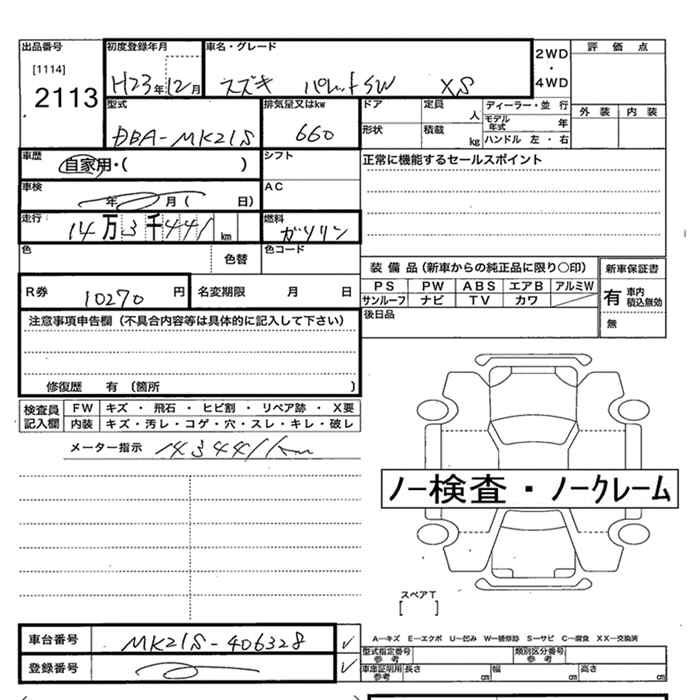 出品番号 初度登録年月 車名・グレード 2WD・4WD 評価点
[1114]
2113 H23年12月 スズキ パレットSW XS
型式 排気量又はkw ドア 定員 人 ディーラー・並行 外装 内装
DBA-MK21S 660 形状 積載 kg モデル年式 年
ハンドル 左・右
車歴 自家用・( ) シフト 正常に機能するセールスポイント
車検 年 月( 日) AC
走行 14万3千441km 燃料 ガソリン
色 色替 色コード
装備品(新車からの純正品に限り〇印) 新車保証書
R券 10270円 名変期限 月 日
PS PW ABS エアB アルミW 有 車内 積込無効
サンルーフ ナビ TV カワ
後日品 無
注意事項申告欄(不具合内容等は具体的に記入して下さい)
修復歴 有(箇所 )
検査員記入欄 FW キズ・飛石・ヒビ割・リペア跡・X要
内装 キズ・汚レ・コゲ・穴・スレ・キレ・破レ
メーター指示 143441km
ノー検査・ノークレーム
スペアT
[ ]
車台番号 MK21S-406328
A―キズ E―エクボ U―凹み W―補修跡 S―サビ C―腐食 XX―交換済
型式指定番号 参考 類別区分番号 参考
登録番号
車庫証明用 参考 長さ cm 幅 cm 高さ cm